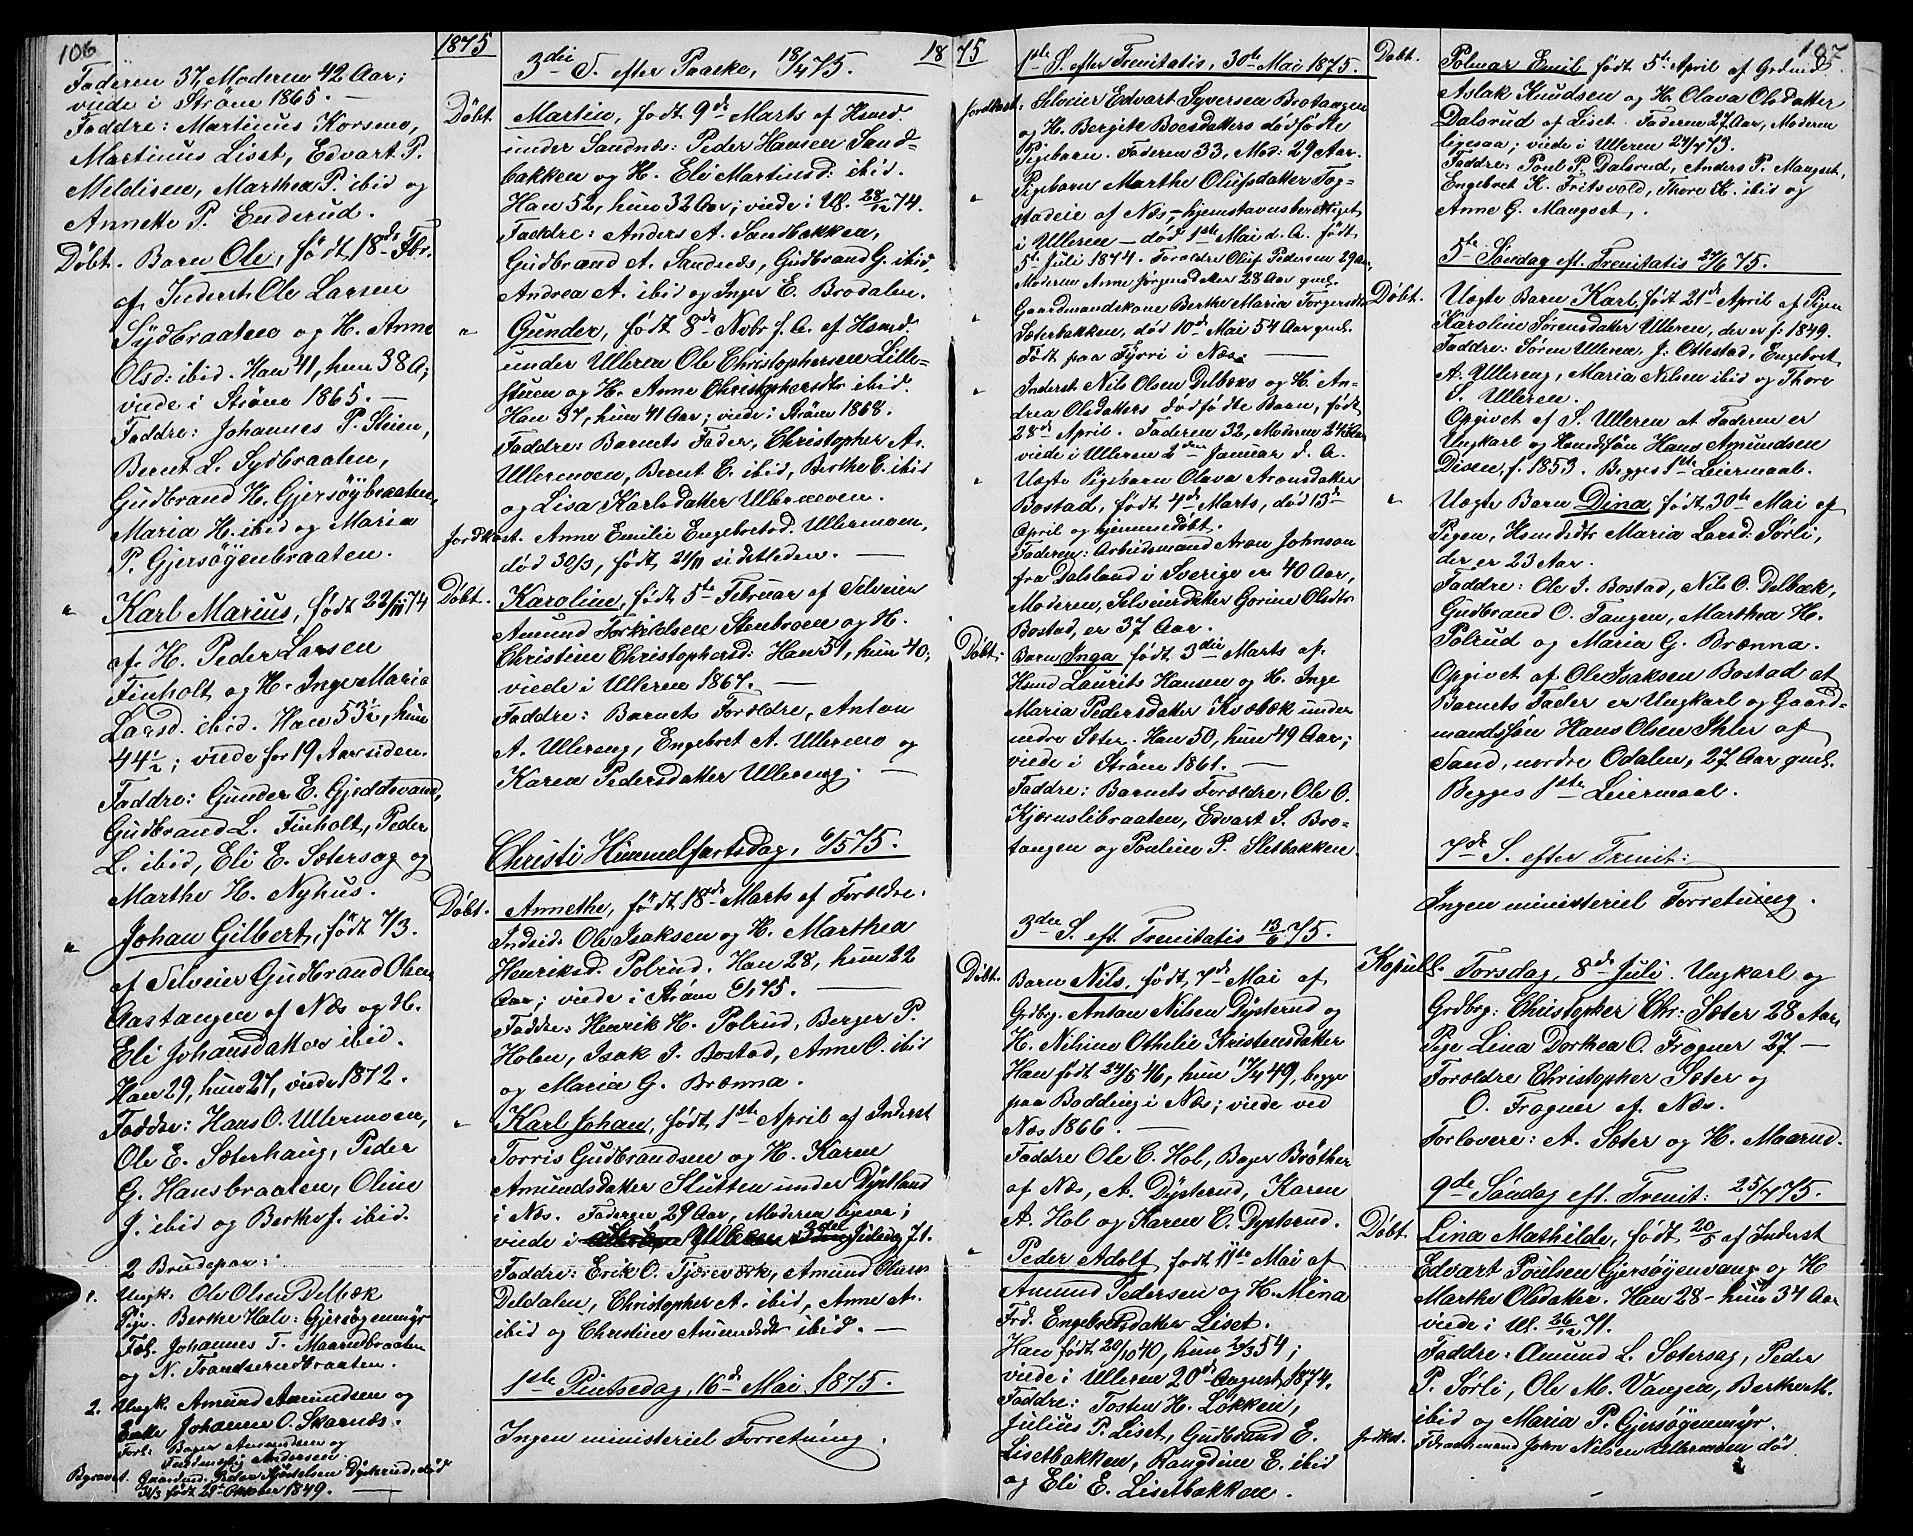 106
Faderen 37, Moderen 42 Aar;
viede i Strøm 1865. —
Faddre: Martinus Korsmo,
Martinus Liset, Edvart P.
Meldisen, Marthea P. ibid og
Annette P. Enderud.
Døbt. Barn Ole, født 18de Fbr.
af Inderst Ole Larsen
Sydbraaten og H. Anne
Olsd: ibid. Han 41, hun 38 A;
viede i Strøm 1865. —
Faddre: Johannes P. Steien,
Bernt L. Sydbraaten,
Gudbrand H. Gjersøybraaten,
Maria H. ibid og Maria
P. Gjersøgenbraaten.
" Karl Marius, født 22/11 74
af H. Peder Larsen
Finholt og H. Inge Maria
Larsd. ibid. Han 53½, hun
44½; viede for 19 Aar siden.
Faddre: Gunder E. Gjeddevand,
Gudbrand L. Finholt, Peder
L. ibid, Eli E. Sætersag og
Marthe H. Nyhus.
" Johan Gilbert, født 7/3.
af Selveier Gudbrand Olsen
Aastangen af Næs og H.
Eli Johansdatter ibid.
Han 29, hun 27, viede 1872.
Faddre: Hans O. Ullermoen,
Ole E. Sæterhaug, Peder
G. Hansbraaten, Oline
J. ibid og Berthe J. ibid.
2 Brudepar:
1. Ungk. Ole Olsen Delbæk
Pige Berthe Halv: Gjersøgenmyr
Forl. Johannes T. Maarudbraaten
og N. Trandserudbraaten.
2. Ungk. Amund Amundsen og
Enke Johanne O. Skarnæs.
Forl: Boger Amundsen og
Andersen
Begravet. Gaardmd. Peder Dysterud, død
31/3 født 29de Oktober 1849. —
1875
3die S. efter Paaske, 18/4 75.
Døbt. Martin, født 9de Marts af Hsmd.
under Sandnæs: Peder Hansen Sand-
bakken og H. Eli Martinsd: ibid.
Han 52, hun 32 Aar; viede i Ul. 28/12 74.
Faddre: Anders A. Sandbakken,
Gudbrand A. Sandnæs, Gudbrand G. ibid,
Andrea A. ibid og Inger E. Brodalen.
" Gunder, født 8de Nobr f. A. af Hsmd.
under Ulleren Ole Christophersen Lille-
stuen og H. Anne Christophersdtr ibid.
Han 37, hun 41 Aar; viede i Strøm 1868.
Faddre: Barnets Fader, Christopher A.
Ullermoen, Bernt E. ibid, Berthe E. ibid
og Lisa Karlsdatter Ullermoen.
Jordkast. Anne Emilie Engebretsd. Ullermoen,
død 30/3, født 21/11 sidstleden. —
Døbt. Karoline, født 5te Februar af Selveier
Amund Torkildsen Stenbroen og H.
Christine Christophersd: Han 51, hun 40;
viede i Ulleren 1867. —
Faddre: Barnets Forældre, Anton
A. Ullereng, Engebret A. Ullermo og
Karen Pedersdatter Ullereng. —
Christi Himmelfartsdag, 6/5 75.
Døbt. Annethe, født 18de Marts af Forældre:
Indsid. Ole Isaksen og H. Marthea
Henriksd. Polrud. Han 28, hun 22
Aar; viede i Strøm 6/1 75. —
Faddre: Henrik H. Polrud, Berger P.
Holen, Isak J. Bostad, Anne O. ibid
og Maria G. Brænna.
" Karl Johan, født 1ste April af Inderst
Torris Gudbrandsen og H. Karen
Amundsdatter Slutten under Dystland
i Næs. Faderen 29 Aar, Moderen ligesaa;
viede i Juledag 71.
Faddre: Erik O. Tjæreværk, Amund Olsen
Deldalen, Christopher A. ibid, Anne A.
ibid og Christine Amundsdtr ibid. —
1ste Pintsedag, 16de Mai 1875.
Ingen ministeriel Forretning.
1875
1ste S. efter Trenitatis, 30te Mai 1875.
Jordkast. Selveier Edvart Syversen Brotangen
og H. Bergite Boesdatters dødfødte
Pigebarn. Faderen 33, Mod: 29 Aar.
" Pigebarn Marthe Olufsdatter Tog-
stadeie af Næs, — hjemstavnsberettiget
i Ulleren — død 1ste Mai d. A. født
5te Juli 1874. Forældre Oluf Pedersen 29 Aar,
Moderen Anne Jørgensdatter 28 Aar gml.
" Gaardmandskone Berthe Maria Torgersdtr
Sæterbakken, død 10de Mai 54 Aar gml.
Født paa Fjørri i Næs. —
" Inderst Nils Olsen Delbæks og H. An-
drea Olsdatters dødfødte Barn, født
28de April. Faderen 32, Moderen 24½ Aar,
viede i Ulleren 2den Januar d. A.
" Uægte Pigebarn Olava Aronsdatter
Bostad, født 4de Marts, død 13de
April og hjemmedøbt.
Faderen: Arbeidsmand Aron Johnson
fra Dalsland i Sverige er 40 Aar,
Moderen, Selveierdatter Gorine Olsdtr
Bostad, er 37 Aar.
Døbt: Barn Inga født 3die Marts af
Hsmd Laurits Hansen og H. Inge
Maria Pedersdatter Kvæbæk under
indre Sæter. Han 50, hun 49 Aar;
viede i Strøm 1861. —
Faddre: Barnets Forældre, Ole O.
Kjernslibraaten, Edvart S. Bro-
tangen og Pouline P. Slitbakken.
3die S. eft. Trenitatis 13/6 75.
Døbt. Barn Nils, født 7de Mai af
Grdbrg. Anton Nilsen Dysterud og
H. Nilsine Othelie Kristensdatter
Han født 24/5 46, hun 17/4 49, begge
paa Bodding i Næs; viede ved
Næs 1866. —
Faddre Ole C. Hol, Boger Brøther
af Næs, A. Dysterud, Karen
A. Hol og Karen C. Dysterud.
" Peder Adolf født 11te Mai af
Amund Pedersen og H. Mina
Frd. Engebretsdatter Liset.
Han født 20/10 40, hun 24/3 54;
viede i Ulleren 20de August 1874.
Faddre: Tosten H. Løkken,
Julius P. Liset, Gudbrand E.
Lisetbakken, Rangdine E. ibid
og Eli E. Lisetbakken.
107
Døbt. Polmar Emil født 5te April af Grdmd
Aslak Knudsen og H. Olava Olsdatter
Dalsrud af Liset. Faderen 27 Aar, Moderen
ligesaa; viede i Ulleren 24/4 73.
Faddre: Poul P. Dalsrud, Anders P. Mangset,
Engebret K. Fritsvold, Thore K. ibid og
Anne G. Mangset.
5te Søndag eft. Trenitatis 27/6 75.
Døbt. Uægte Barn Karl, født 21de April af Pigen
Karoline Sørensdatter Ulleren, der er f: 1849.
Faddre: Søren Ulleren, J. Ottestad, Engebret
A. Ullereng, Maria Nilsen ibid og Thore
S. Ulleren.
Opgivet af S. Ulleren at Faderen er
Ungkarl og Hsmdsøn Hans Amundsen
Disen, f. 1853. Begges 1ste Leiermaal.
" Uægte Barn Dina, født 30te Mai af
Pigen, Hsmdsdtr Maria Larsd. Sørli,
der er 23 Aar.
Faddre: Ole J. Bostad, Nils O. Delbæk,
Gudbrand O. Tangen, Marthea H.
Polrud og Maria G. Brænna.
Opgivet af Ole Isaksen Bostad at
Barnets Fader er Ungkarl og Gaard-
mandssøn Hans Olsen Ihler af
Sand, nordre Odalen, 27 Aar gml.
Begges 1ste Leiermaal.
7de S. efter Trenit:
Ingen ministeriel Forretning.
Kopul. Torsdag, 8de Juli. Ungkarl og
Grdbrg: Christopher Chr: Sæter 28 Aar,
Pige Lina Dorthea O. Fragner 27 —
Forældre Christopher Sæter og
O. Fragner af Næs.
Forlovere: A. Sæter og H. Maarud.
9de Søndag eft. Trenit: 25/7 75.
Døbt. Lina Mathilde, født 20/5 af Inderst
Edvart Poulsen Gjersøgenvang og H
Marthe Olsdatter. Han 28 — hun 34 Aar
viede i Ul. 26/12 71.
Faddre: Amund L. Sætersag, Peder
P. Sørli, Ole M. Vangen, Berthe M.
ibid og Maria P. Gjersøgenmyr.
Jordkst. John Nilsen Ullermoen død